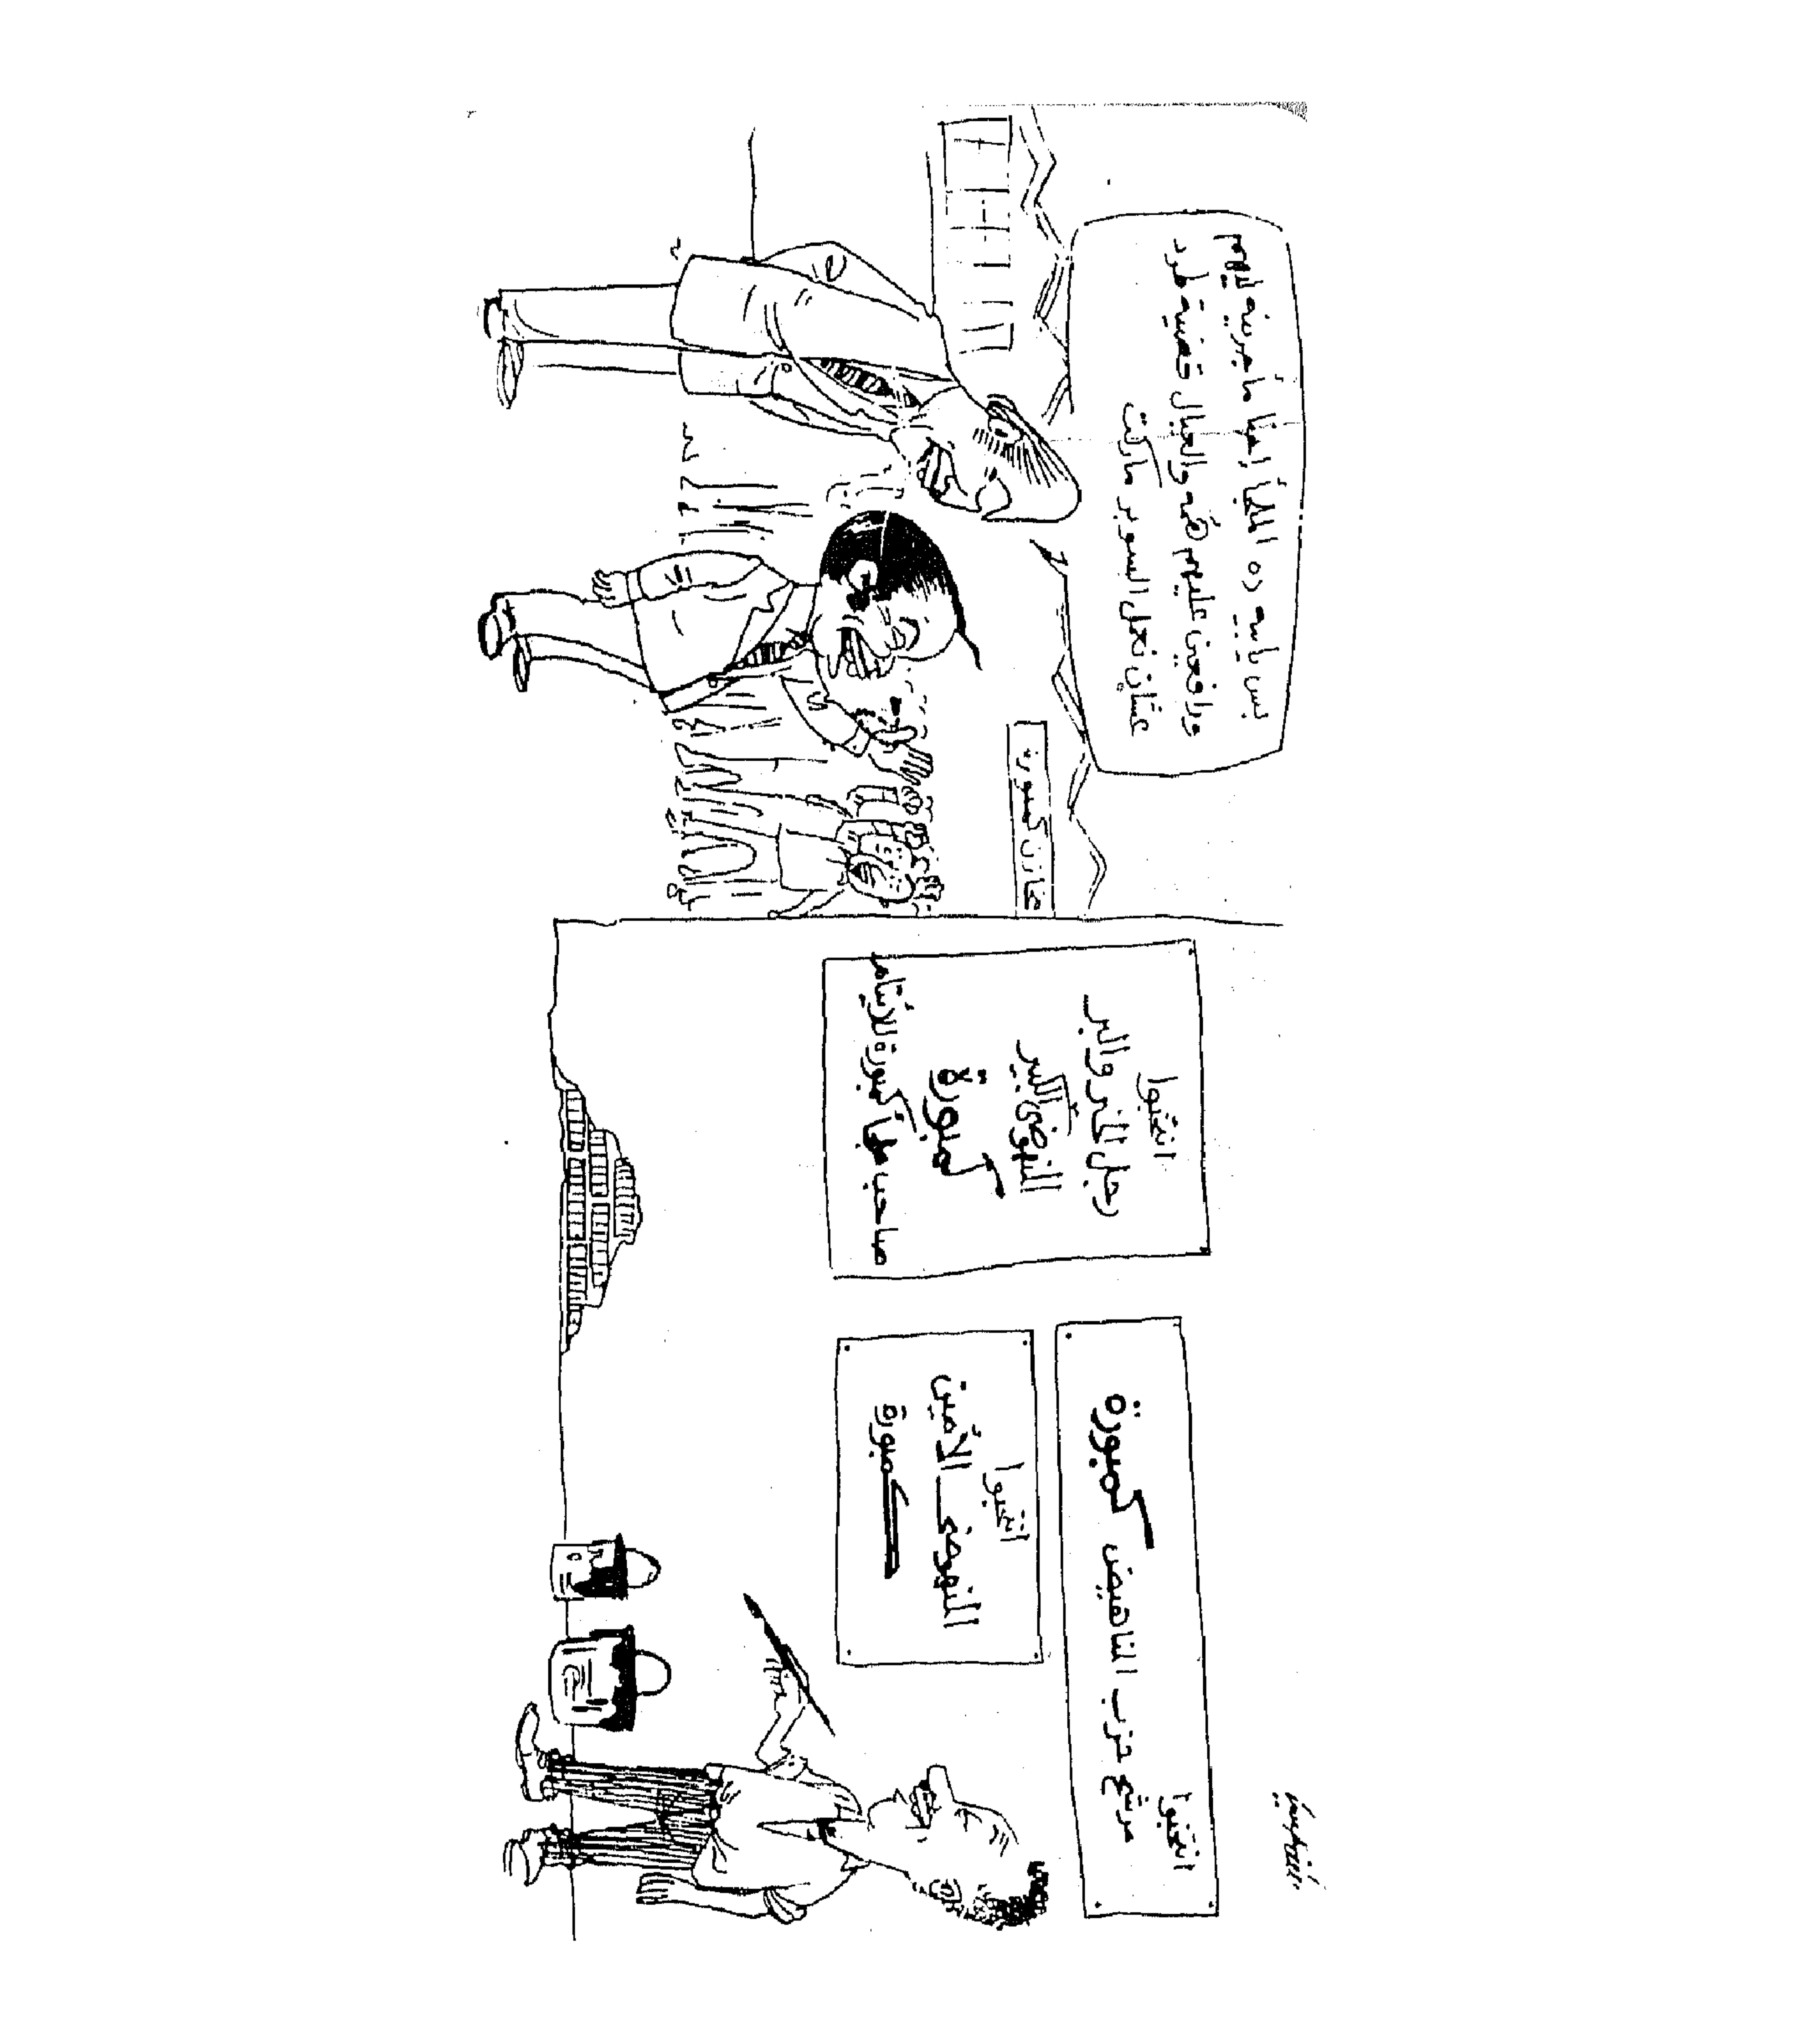 انتخبوا
مرشح حزب المناهيض كمبورة
انتخبوا
النهوضى الأمين
كمبورة
انتخبوا
رجل الخير والبر
النهوضى الكبير
كمبورة
صاحب ملجأ كمبورة للأيتام
كمبورة
بس يا بيه ده الملجأ إحنا مأجرينه ليهم
ورافعين عليهم همه والعيال قضية طرد
عشان نعمل السوبر ماركت